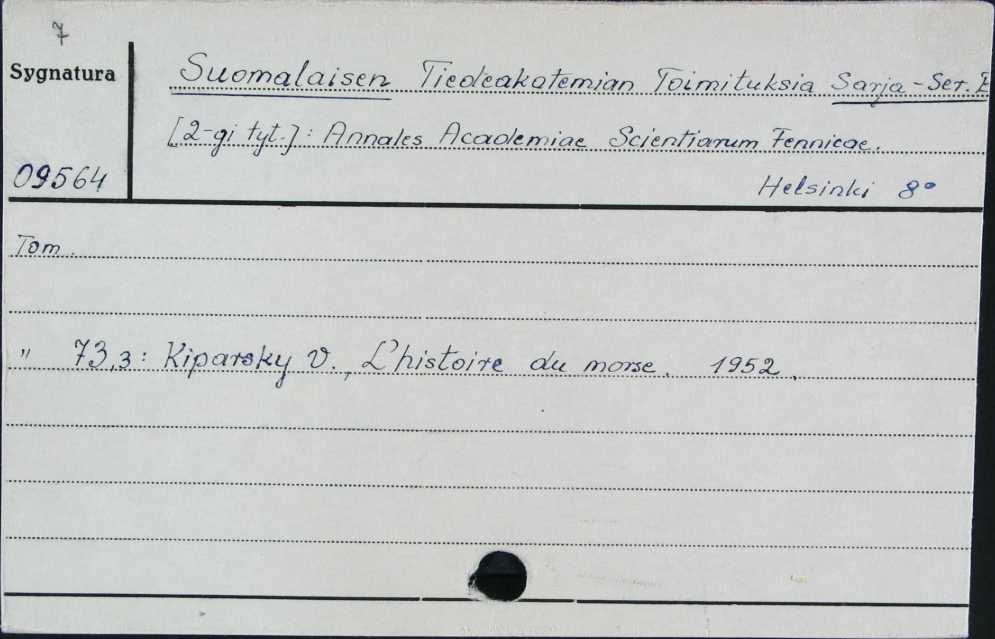 7
Sygnatura
Suomalaisen Tiedeakatemian Toimituksia Sarja-Ser. B
[2-gi tyt.]: Annales Academiae Scientiarum Fennicae.
09564
Helsinki 8°
Tom.
" 73,3: Kiparsky V., L'histoire du morse. 1952.